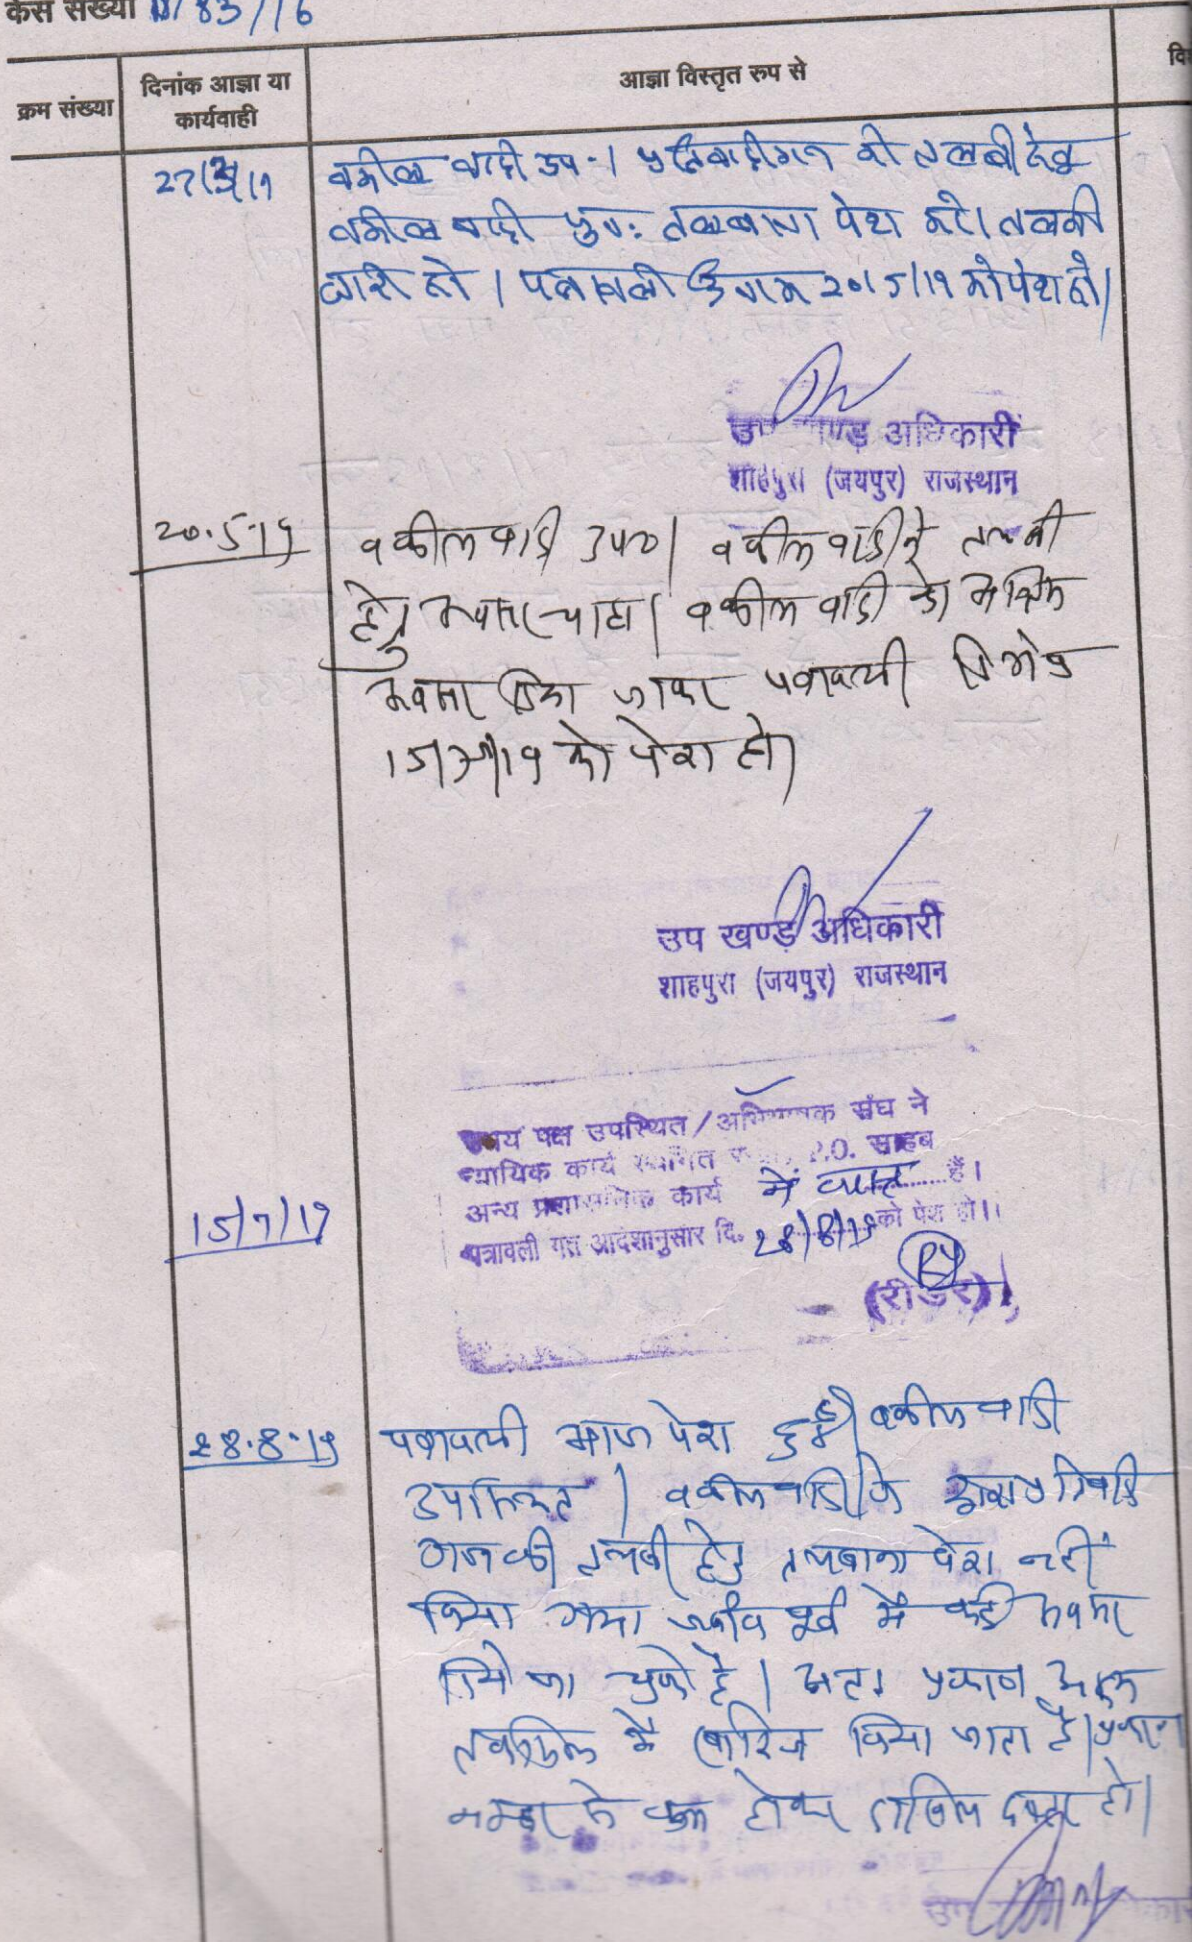 केस संख्या 83/16
क्रम संख्या
दिनांक आज्ञा या
कार्यवाही
आज्ञा विस्तृत रूप से
वि
27/3/19
वकील वादी उप.। प्रतिवादीगन की तलबी हेतु
वकील वादी पुन: तलबाना पेश करे। तलबी
जारी हो। पत्रावली 20/5/19 को पेश हो।
उप खण्ड अधिकारी
शाहपुरा (जयपुर) राजस्थान
20.5.19
वकील वादी उप०। वकील वादी ने तलबी
हेतु अवसर चाहा। वकील वादी को अन्तिम
अवसर दिया जाकर पत्रावली दिनांक
15/7/19 को पेश हो।
उप खण्ड अधिकारी
शाहपुरा (जयपुर) राजस्थान
उभय पक्ष उपस्थित/अभिभाषक संघ ने
न्यायिक कार्य स्थगित P.O. साहब
अन्य प्रशासनिक कार्य में व्यस्त हैं।
15/7/19
पत्रावली गत आदेशानुसार दि. 28/8/19 को पेश हो।।
(रीडर)
28.8.19
पत्रावली आज पेश हुई। वकील वादी
उपस्थित। वकील वादी के द्वारा प्रतिवादी
गन की तलबी हेतु तलबाना पेश नहीं
किया गया जबकि पूर्व में कई अवसर
दिये जा चुके है। अतः प्रकरण अदम
तकमील में खारिज किया जाता है। प्रकरण
नम्बर से कम होकर दाखिल दफ्तर हो।
उप